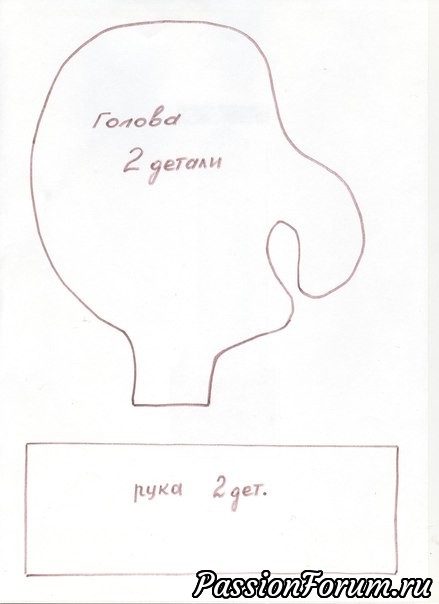 Голова
2 детали
рука 2 дет.
PassionForum.ru